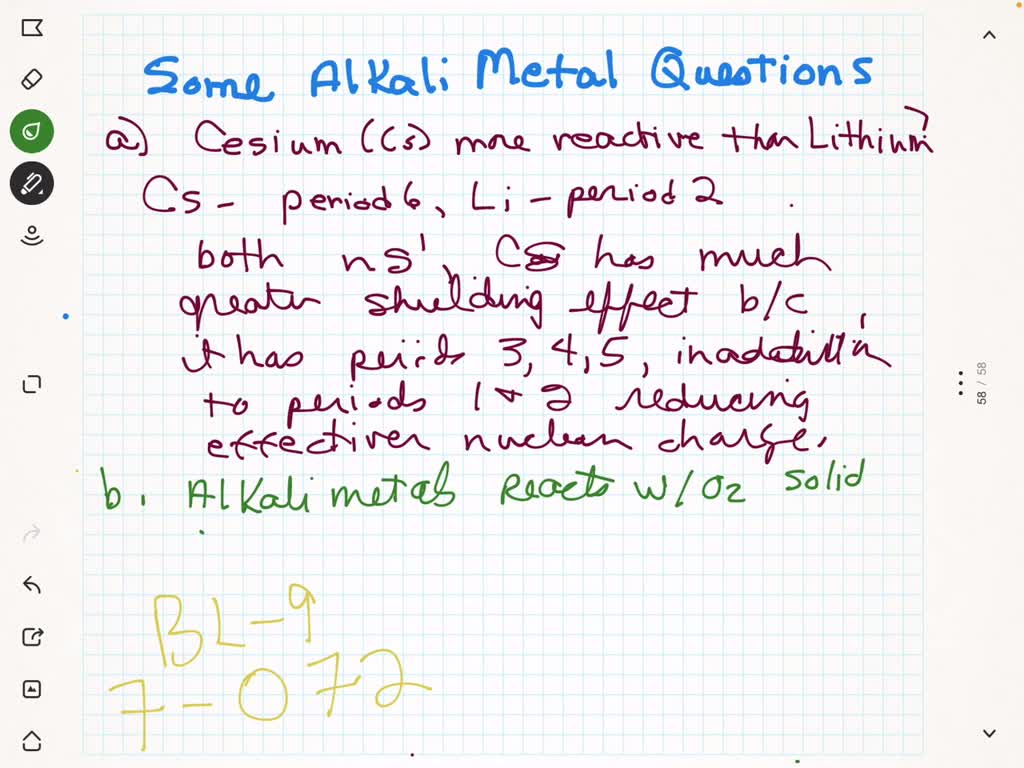 Some Alkali Metal Questions
a) Cesium (Cs) more reactive than Lithium?
Cs - period 6, Li - period 2
both ns¹, Cs has much
greater shielding effect b/c
it has periods 3, 4, 5, in addition
to periods 1 + 2 reducing
effective nuclear charge.
b. Alkali metals reacts w/O2 solid
BL-9
7-072
58 / 58